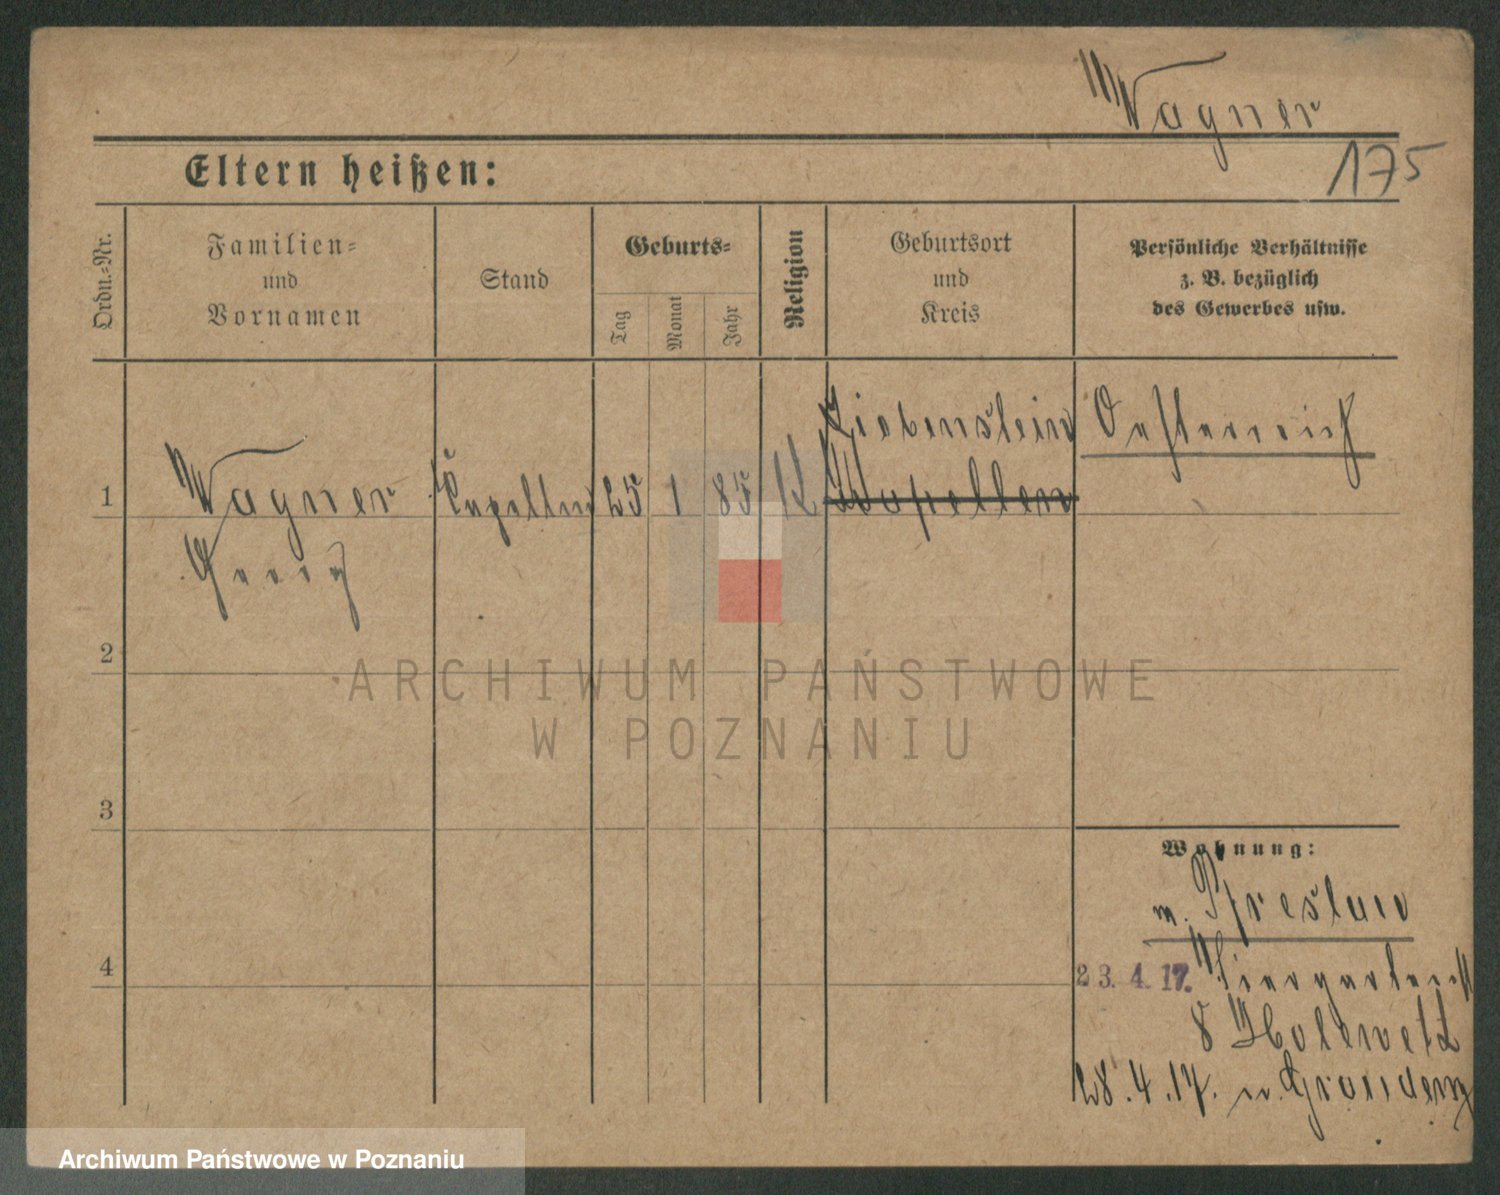 Wagner
175
Eltern heißen:
Ordn.-Nr.
Familien-
und
Vornamen
Stand
Geburts-
Tag
Monat
Jahr
Religion
Geburtsort
und
Kreis
Persönliche Verhältnisse
z. B. bezüglich
des Gewerbes usw.
Liebenstein
Oesterreich
1 Wagner 25 1 85 K
Georg
2
3
4
Wohnung:
n. Breslau
23. 4. 17. Tiergartenst
8
28. 4. 17. n. Graudenz
ARCHIWUM PAŃSTWOWE
W POZNANIU
Archiwum Państwowe w Poznaniu